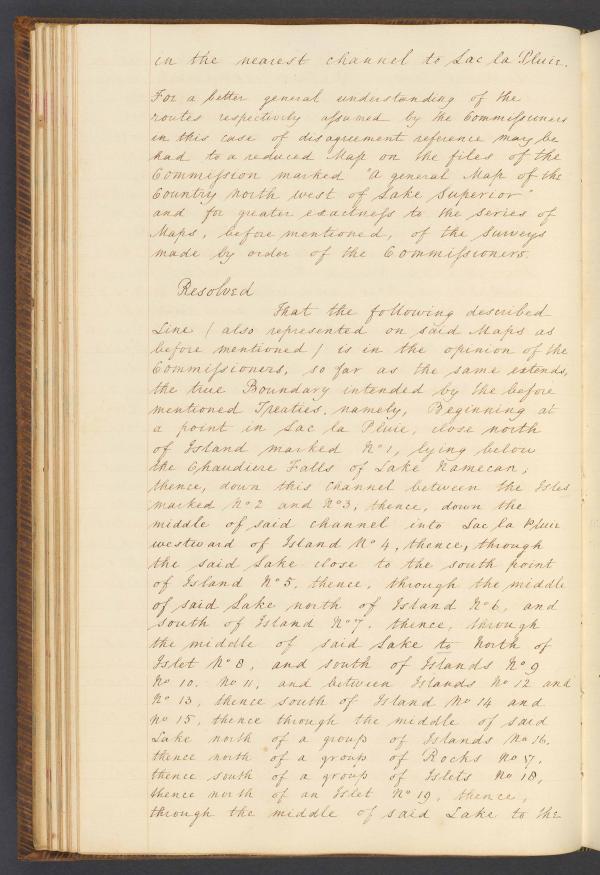 in the nearest channel to Lac la Pluie.
For a better general understanding of the
routes respectivity assumed by the Commissioners
in this case of disagreement reference may be
had to a reduced Map on the files of the
Commission marked "a general Map of the
Country north west of Lake Superior"
and for greater exactness to the series of
Maps, before mentioned, of the Surveys
made by order of the Commissioners.
Resolved
That the following described
Line (also represented on said Maps as
before mentioned) is in the opinion of the
Commissioners, so far as the same extends,
the true Boundary intended by the before
mentioned Treaties, namely, Beginning at
a point in Lac la Pluie, close north
of Island marked No 1, lying below
the Chaudiere Falls of Lake Namecan,
thence, down this channel between the Isles
marked No 2 and No 3, thence, down the
middle of said channel into Lac la Pluie
westward of Island No 4, thence, through
the said Lake close to the south point
of Island No 5, thence, through the middle
of said Lake north of Island No 6, and
south of Island No 7, thence, through
the middle of said Lake to North of
Islet No 8, and south of Islands No 9
No 10, No 11, and between Islands No 12 and
No 13, thence south of Island No 14 and
No 15, thence through the middle of said
Lake north of a group of Islands No 16,
thence north of a group of Rocks No 17,
thence south of a group of Islets No 18,
thence north of an Islet No 19, thence,
through the middle of said Lake to the